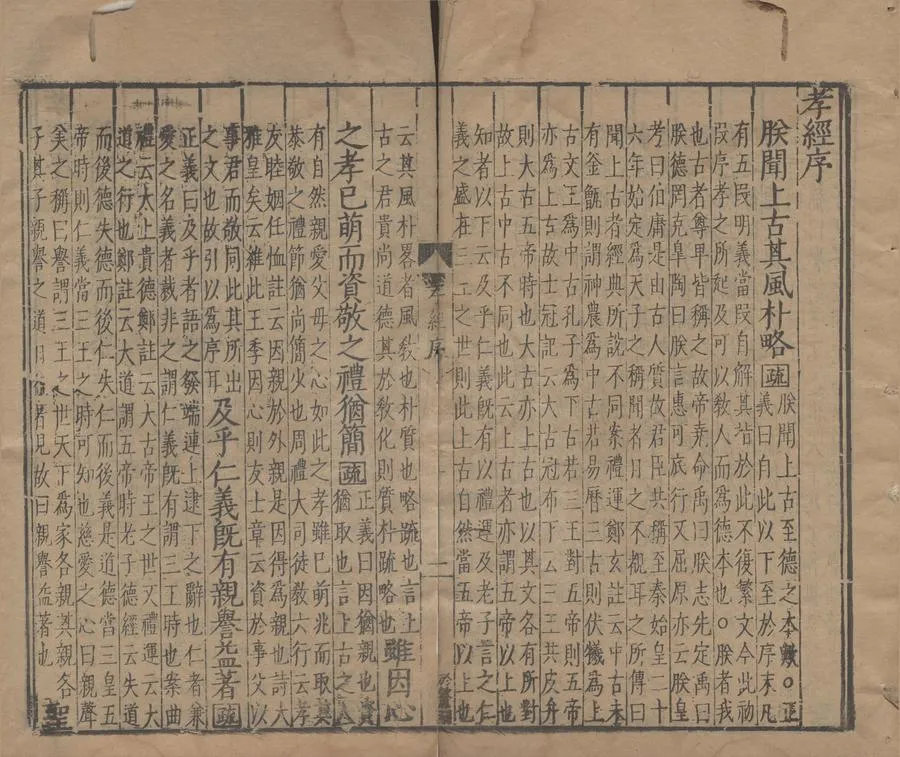 孝經序
朕聞上古其風朴略疏朕聞上古至德之本歟○正
義曰自此以下至於序末凡
有五段明義當段自解其指於此不復繁文今此初
段序孝之所起及可以敎人而爲德本也○朕者我
也古者尊卑皆稱之故帝堯命禹曰朕志先定禹曰
朕德罔克皐陶曰朕言惠可底行又屈原亦云朕皇
考曰伯庸是由古人質故君臣共稱至秦始皇二十
六年始定爲天子之稱聞者目之不覩耳之所傳曰
聞上古者經典所說不同案禮運鄭玄註云中古未
有釜甑則謂神農爲中古若易曆三古則伏犧爲上
古文王爲中古孔子爲下古若三王對五帝則五帝
亦爲上古故士冠記云大古冠布下云三王共皮弁
則大古五帝時也大古亦上古也以其文各有所對
故上古中古不同也此云上古者亦謂五帝以上也
知者以下云及乎仁義旣有以禮運及老子言之仁
義之盛在三王之世則此上古自然當五帝以上也
孝經序
一
云其風朴畧者風敎也朴質也略疏也言上
古之君貴尚道德其於敎化則質朴疏略也
雖因心
之孝已萌而資敬之禮猶簡疏正義曰因猶親也資
猶取也言上古之人
有自然親愛父母之心如此之孝雖已萌兆而取其
恭敬之禮節猶尚簡少也周禮大司徒敎六行云孝
友睦姻任恤註云因親於外親是因得爲親也詩大
雅皇矣云維此王季因心則友士章云資於事父以
事君而敬同此其所出
之文也故引以爲序耳
及乎仁義旣有親譽益著疏
正義曰及乎者語之發端連上逮下之辭也仁者兼
愛之名義者裁非之謂仁義旣有謂三王時也案曲
禮云太上貴德鄭註云大古帝王之世又禮運云大
道之行也鄭註云大道謂五帝時老子德經云失道
而後德失德而後仁失仁而後義是道德當三皇五
帝時則仁義當三王之時可知也慈愛之心曰親聲
美之稱曰譽謂三王之世天下爲家各親其親各
子其子親譽之道日益著見故曰親譽益著也